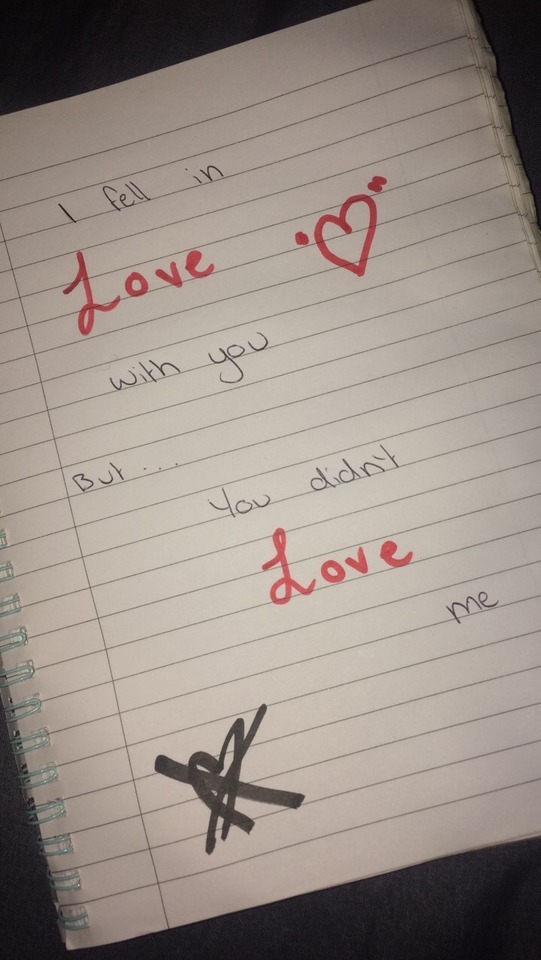 I fell in
Love
with you
But...
You didn't
Love
me